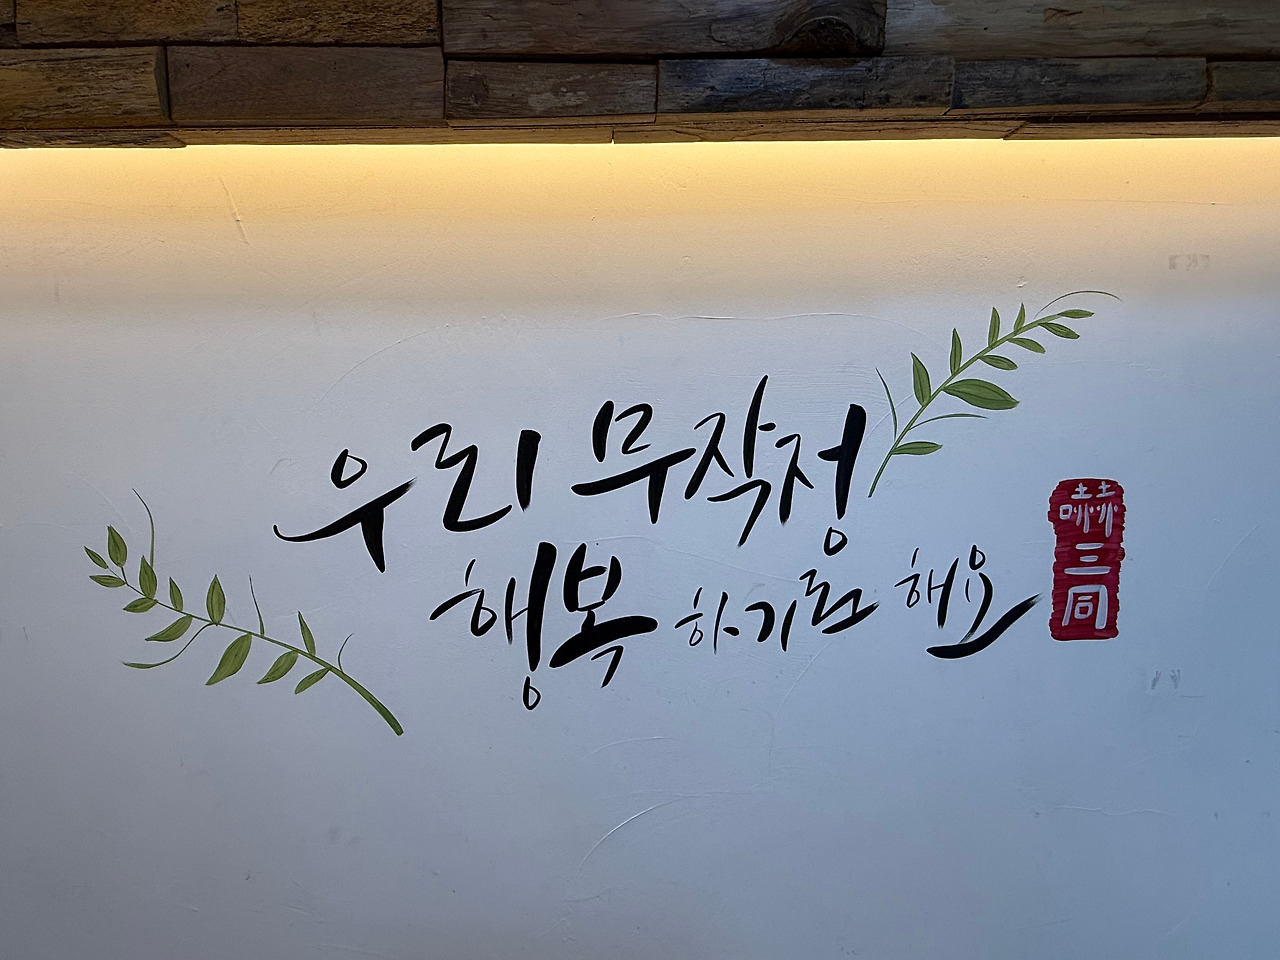 우리 무작정
행복 하기로 해요
嚇三同